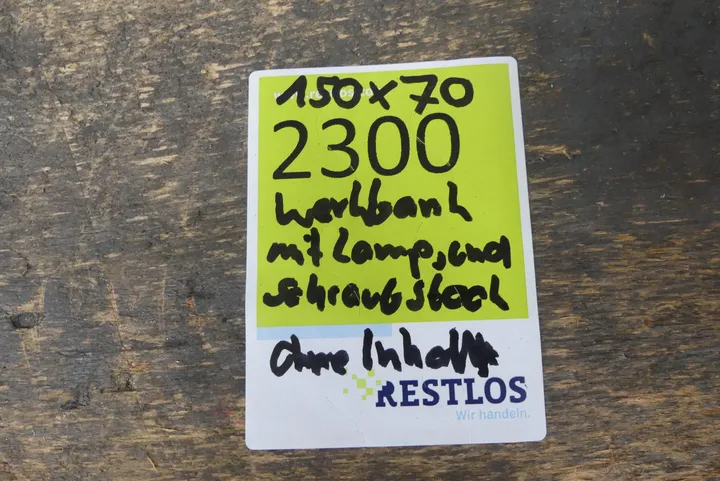 150 x 70
2300
Werkbank
mit Lamp, und
Schraubstock
Ohne Inhalt
RESTLOS
Wir handeln.